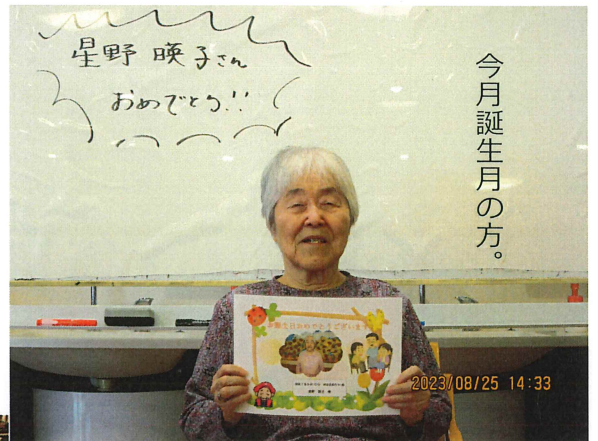 星野 暎子さん
おめでとう!!
今月誕生月の方。
お誕生日おめでとうございます
2023/08/25 14:33